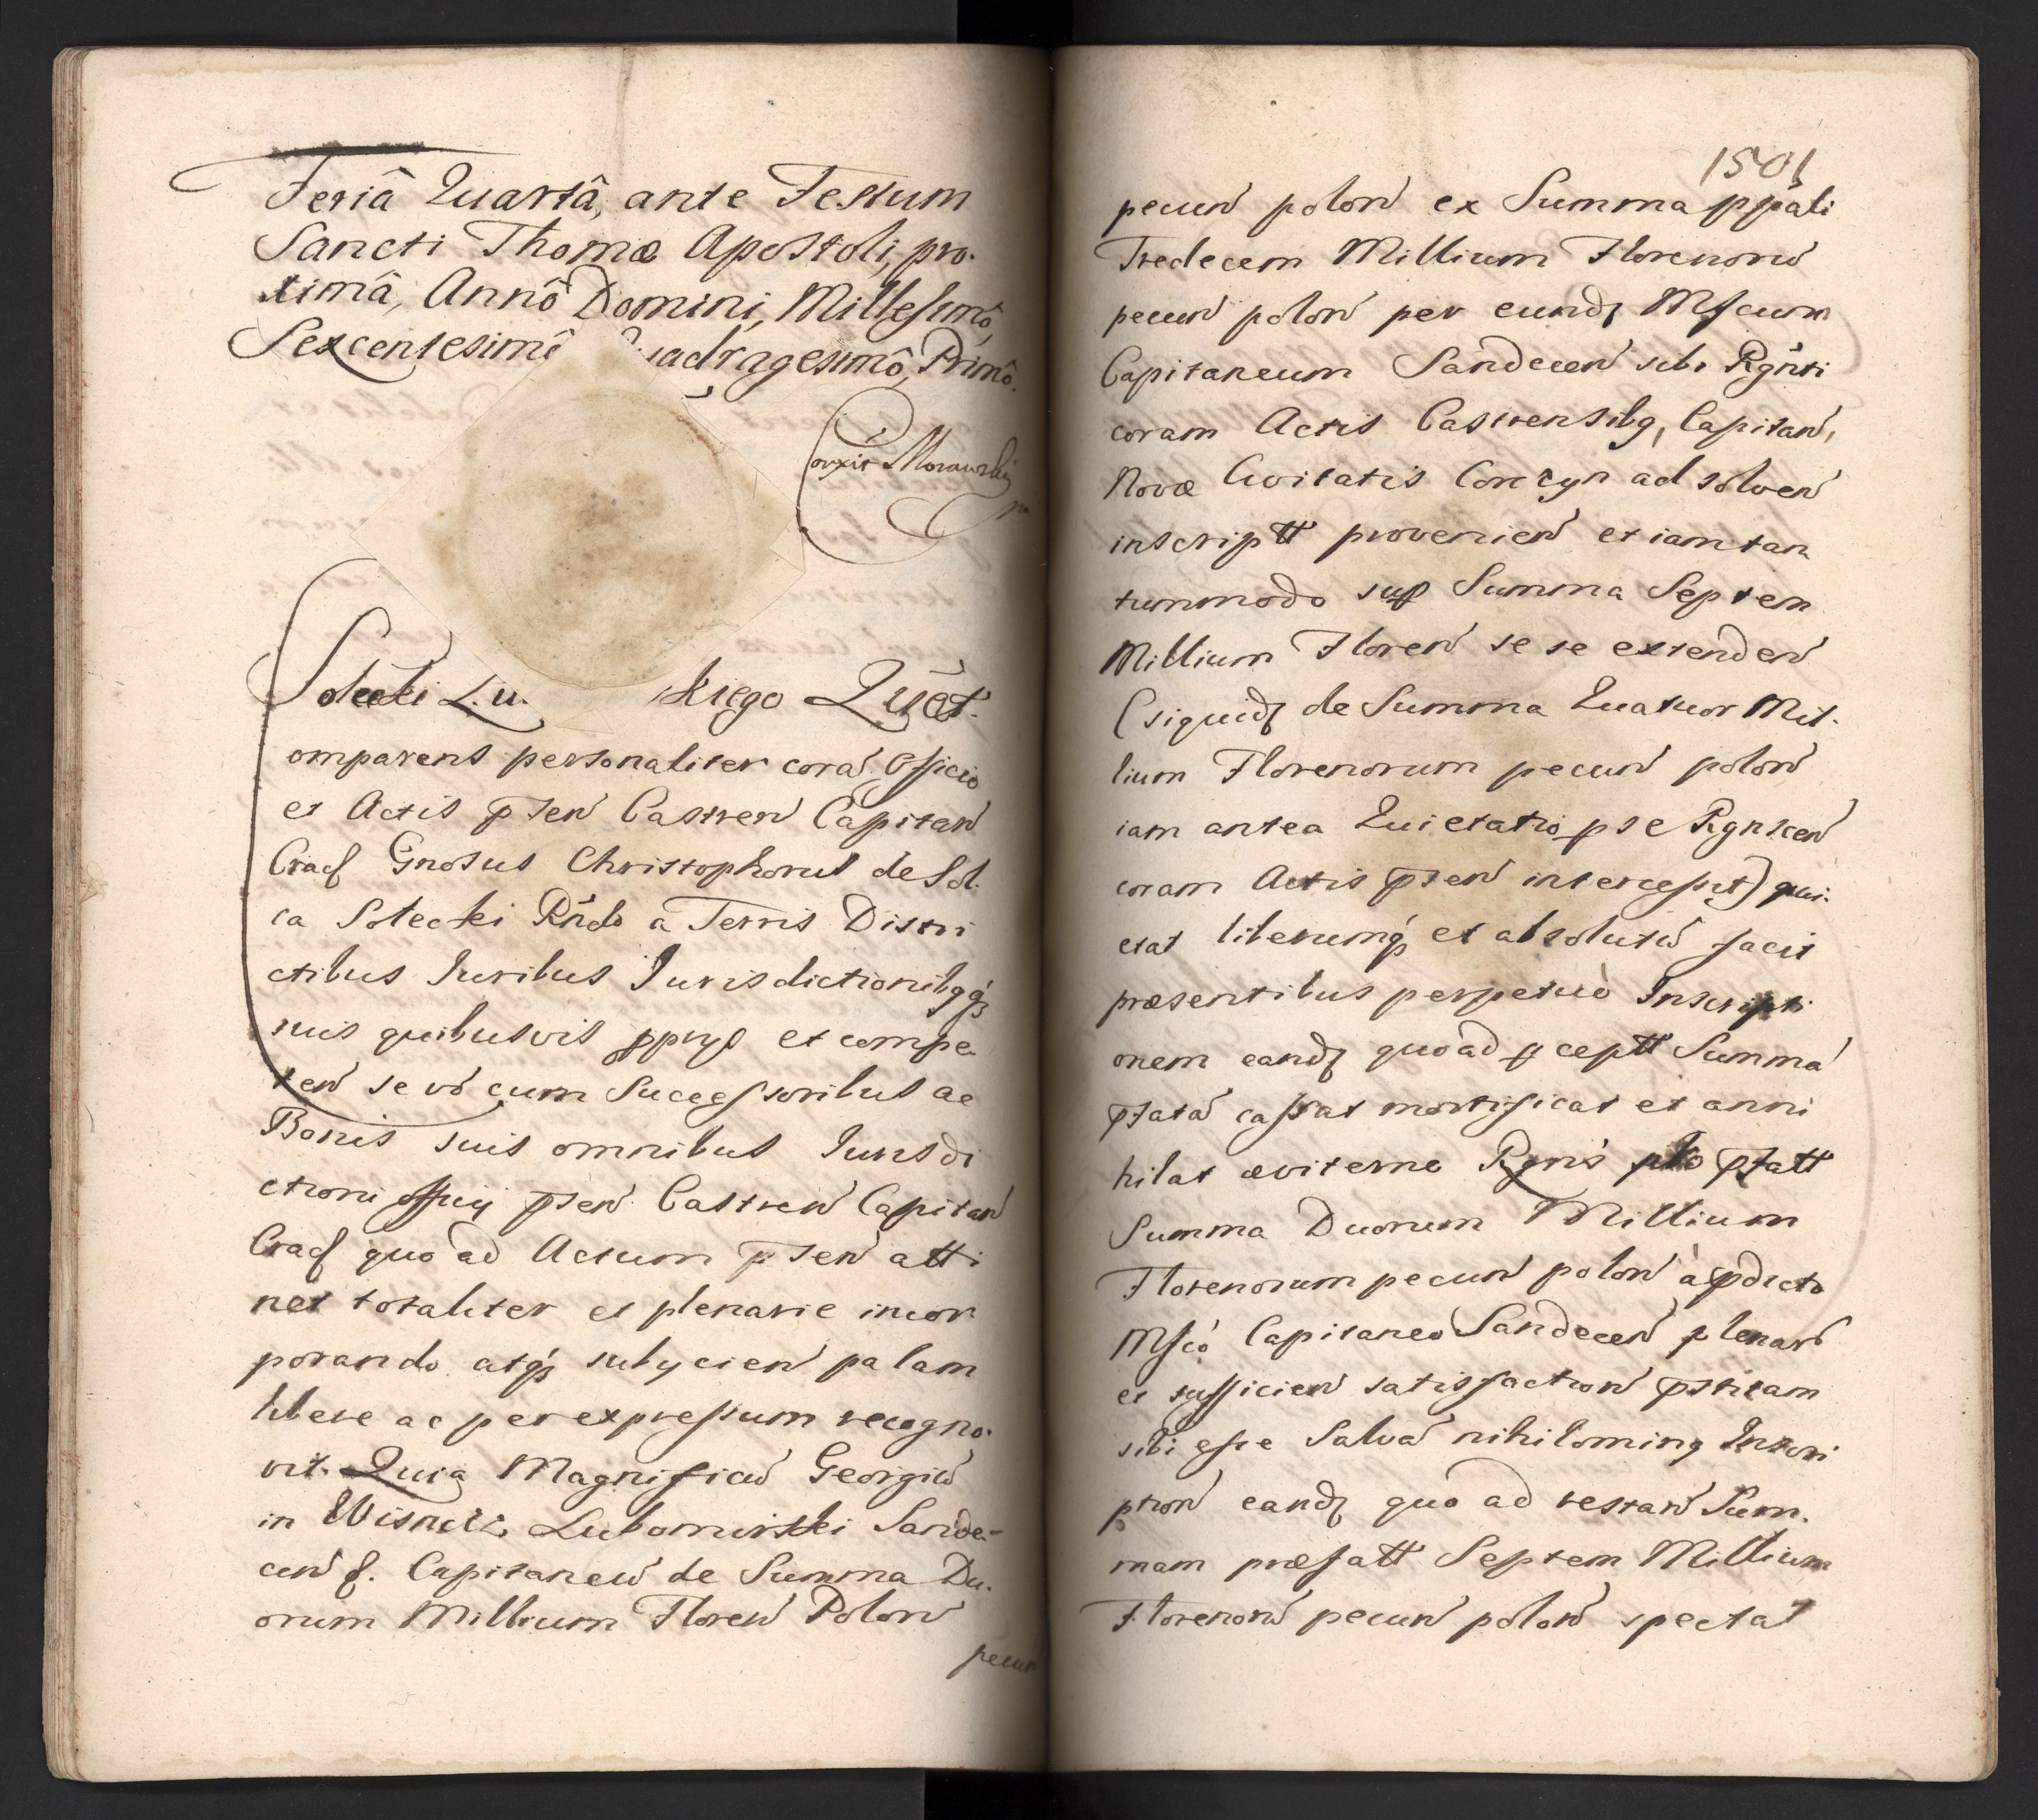 Feriâ Quartâ, ante Festum
Sancti Thomæ Apostoli, pro-
ximâ, Annô Domini, Millesimô,
Sexcentesimô Quadragesimô, Primô.
Coxit Morawski
Solecki Lu kiego Quiet.
omparens personaliter corã Officio
et Actis pñten Castren Capitan
Crac Gnosus Christophorus de Sol-
ca Solecki Rñcto a Terris Distri
ctibus Iuribus Iurisdictionibq
suis quibusvis pprys et compe-
ten se vò cum Successoribus ac
Bonis suis omnibus Iurisdi
ctioni officij pñten Castren Capitan
Crac quo ad Actum pñten atti
net totaliter et plenarie incor
porando atq subycien palam
libere ac per expressum recogno-
vit. Quia Magnificũ Georgiũ
in Wisnicz Lubomirski Sande-
cen S. Capitaneũ de Summa Du-
orum Millium Floren Polon
pecun
1501
pecun polon ex Summa ppali
Tredecem Millium Florenorũ
pecun polon per eund Mfcum
Capitaneum Sandecen sibi Rgnti
coram Actis Castrensibq, Capitan,
Novæ Civitatis Corczyn ad solven
inscriptt provenien et iam tan
tummodo sup Summa Septem
Millium Floren se se extenden
(siquid de Summa Quatuor Mil-
lium Florenorum pecun polon
iam antea Quietatio p se Rgnscen
coram Actis pñten intercessit) qui-
etat liberumq et absolutũ facit
præsentibus perpetuò Inscripti
onem eand quoad pceptt Summã
pfatã cassat mortificat et anni
hilat æviterne Rgns pro pfatt
Summa Duorum Millium
Florenorum pecun polon à pdicto
Mfcó Capitaneo Sandecen plenarũ
et sufficien satisfaction pstitam
sibi esse Salvã nihilominq Inscri
ption eand quo ad restan Sum-
mam præfatt Septem Millium
Florenorũ pecun polon spectat